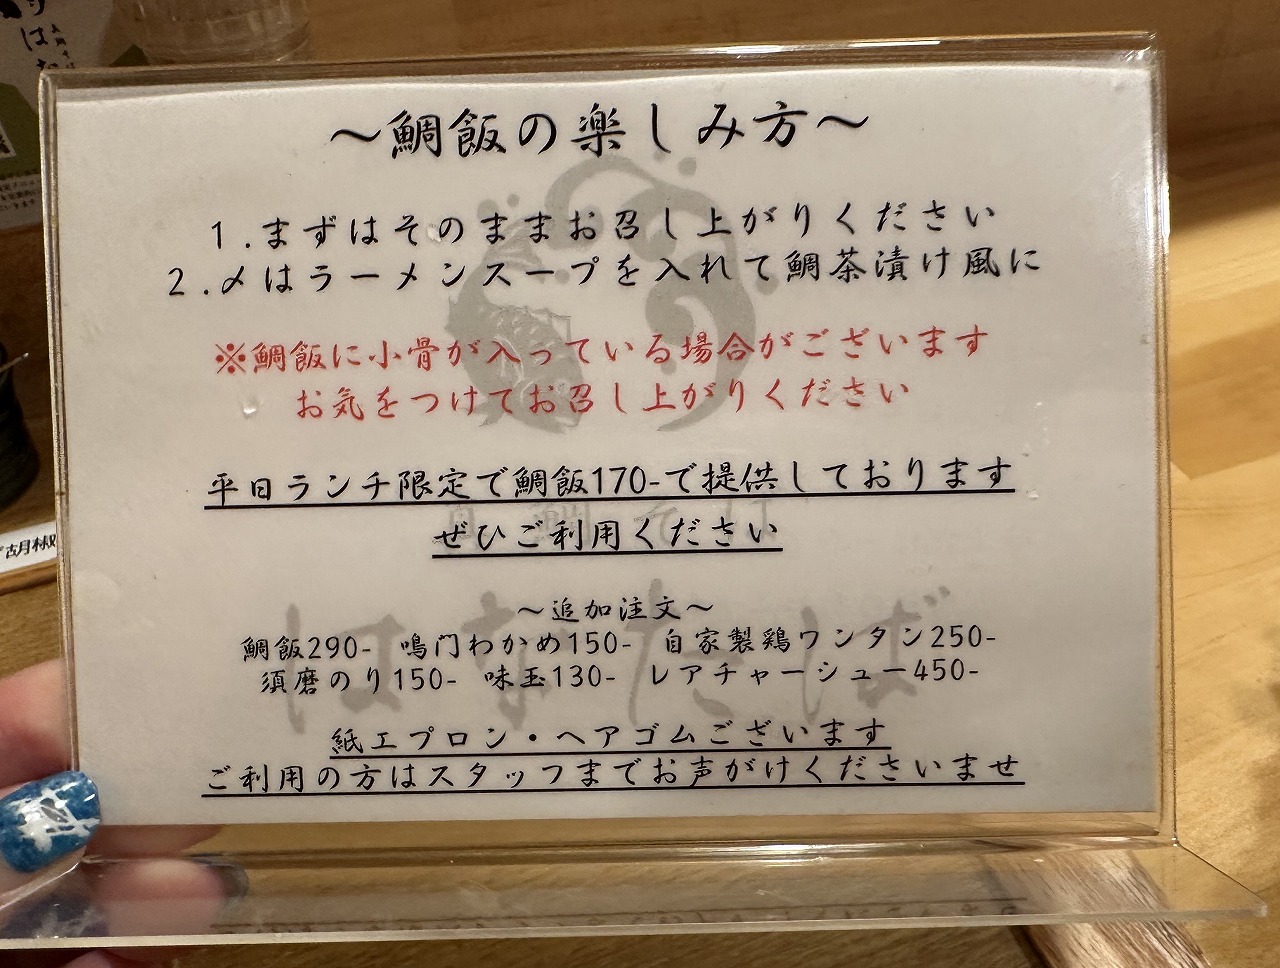 ～鯛飯の楽しみ方～
1.まずはそのままお召し上がりください
2.〆はラーメンスープを入れて鯛茶漬け風に
※鯛飯に小骨が入っている場合がございます
お気をつけてお召し上がりください
平日ランチ限定で鯛飯170-で提供しております
ぜひご利用ください
～追加注文～
鯛飯290- 鳴門わかめ150- 自家製鶏ワンタン250-
須磨のり150- 味玉130- レアチャーシュー450-
紙エプロン・ヘアゴムございます
ご利用の方はスタッフまでお声がけくださいませ
はなたば
胡椒